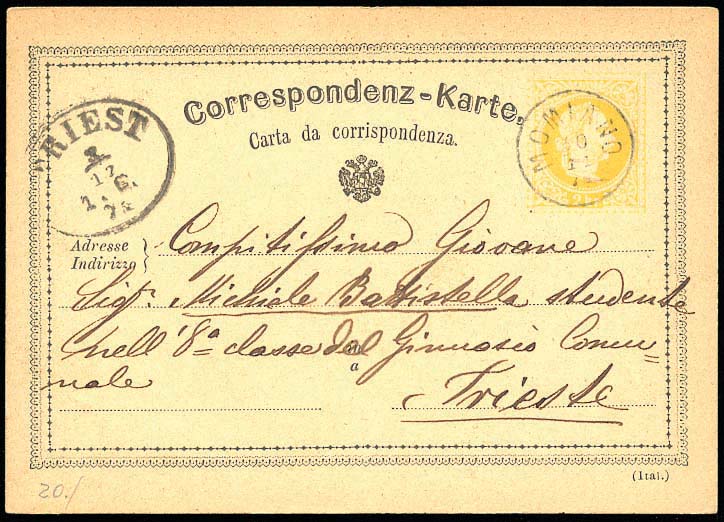 Correspondenz-Karte,
Carta da corrispondenza.
TRIEST
12
G.
MOMIANO
10
Adresse
Indirizzo
Compitissimo Giovane
Sigr. Michiele Battistella studente
nell' 8a classe del Ginnasio Comu=
nale
in
a
Trieste
(Ital.)
20./